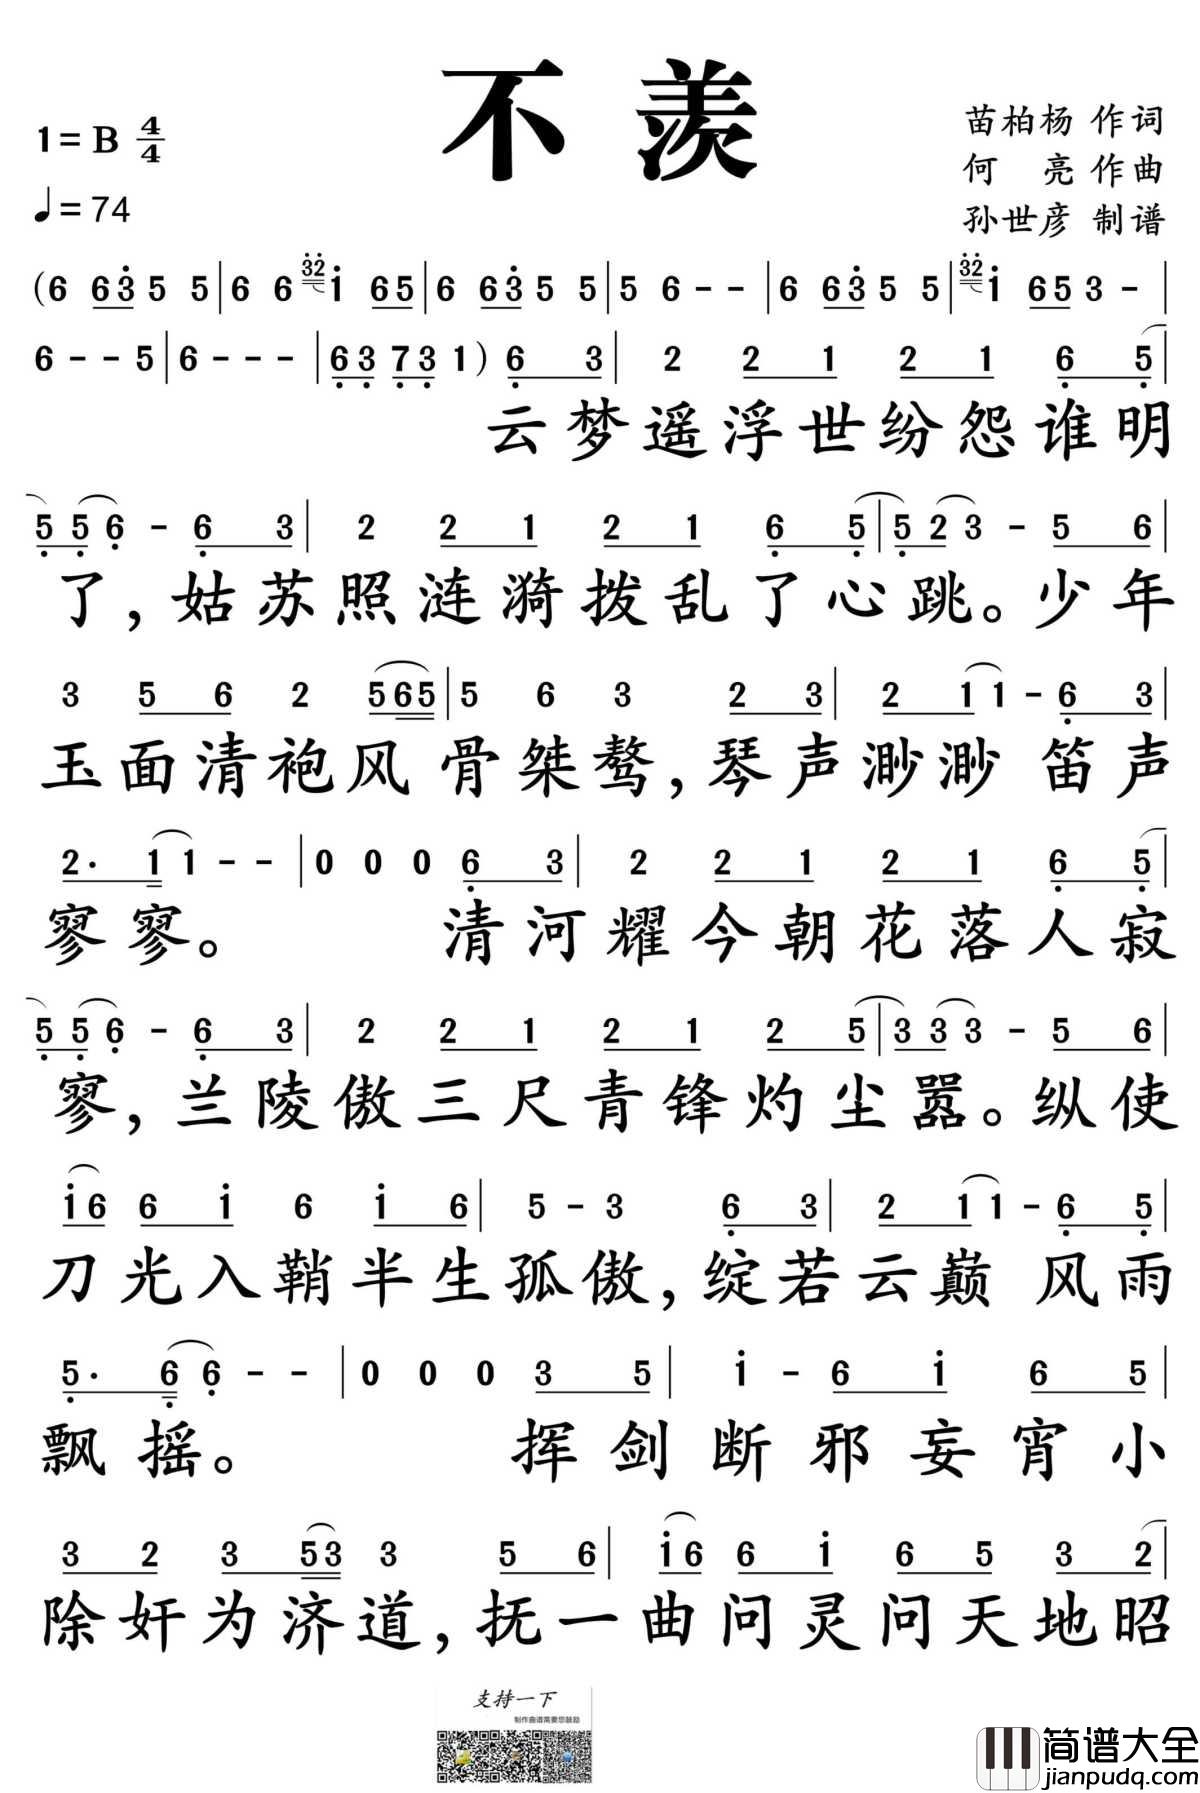 不羡
1=B 4/4
♩=74
苗柏杨 作词
何 亮 作曲
孙世彦 制谱
(6 6 3̇ 5 5 | 6 6 3̇2̇ 1̇ 6 5 | 6 6 3̇ 5 5 | 5 6 - - | 6 6 3̇ 5 5 | 3̇2̇ 1̇ 6 5 3 - |
6 - - 5 | 6 - - - | 6̣ 3̣ 7̣ 3̣ 1 ) 6̣ 3 | 2 2 1 2 1 6̣ 5̣ |
云梦遥浮世纷怨谁明
5̣ 5̣ 6̣ - 6̣ 3 | 2 2 1 2 1 6̣ 5̣ | 5̣ 2 3 - 5 6 |
了,姑苏照涟漪拨乱了心跳。少年
3 5 6 2 5 6 5 | 5 6 3 2 3 | 2 1 1 - 6̣ 3 |
玉面清袍风骨桀骜,琴声渺渺 笛声
2· 1 1 - - | 0 0 0 6̣ 3 | 2 2 1 2 1 6̣ 5̣ |
寥寥。 清河耀今朝花落人寂
5̣ 5̣ 6̣ - 6̣ 3 | 2 2 1 2 1 2 5 | 3 3 3 - 5 6 |
寥,兰陵傲三尺青锋灼尘嚣。纵使
1̇ 6 6 1̇ 6 1̇ 6 | 5 - 3 6̣ 3 | 2 1 1 - 6̣ 5̣ |
刀光入鞘半生孤傲,绽若云巅 风雨
5̣· 6̣ 6̣ - - | 0 0 0 3 5 | 1̇ - 6 1̇ 6 5 |
飘摇。 挥剑断邪妄宵小
3 2 3 5 3 3 5 6 | 1̇ 6 6 1̇ 6 5 3 2 |
除奸为济道,抚一曲问灵问天地昭
支持一下
制作曲谱需要您鼓励
简谱大全
jianpudq.com